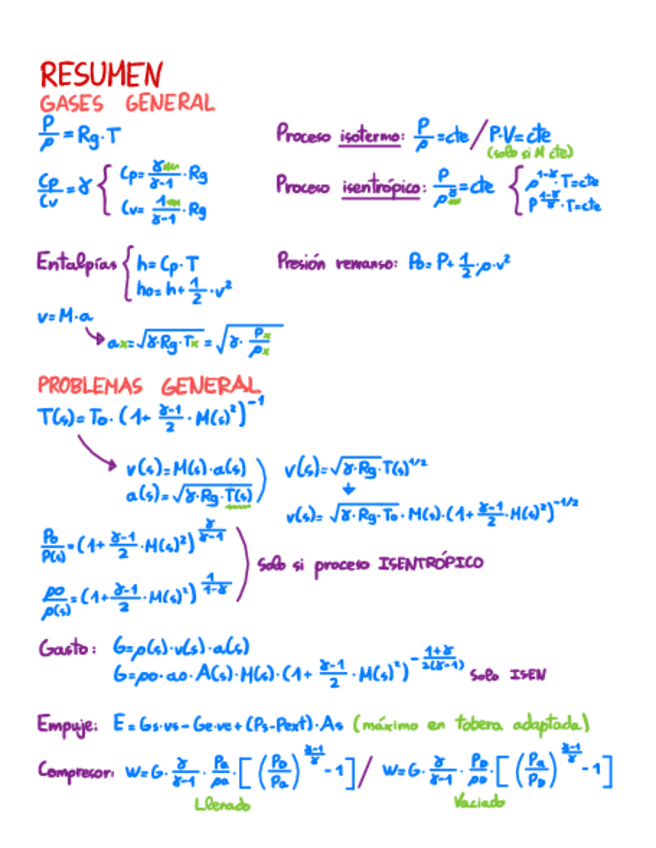 RESUMEN
GASES GENERAL
P/ρ = Rg·T
Proceso isotermo: P/ρ = cte / P·V = cte
(solo si M cte)
Cp/Cv = γ { Cp = γ/(γ-1) · Rg
Cv = 1/(γ-1) · Rg
Proceso isentrópico: P/ρ^γ = cte { ρ^(1-γ)·T = cte
P^((1-γ)/γ)·T = cte
Entalpías { h = Cp·T
h0 = h + 1/2 · v²
Presión remanso: P0 = P + 1/2·ρ·v²
v = M·a
ax = √(γ·Rg·Tx) = √(γ · Px/ρx)
PROBLEMAS GENERAL
T(s) = T0 · (1 + (γ-1)/2 · M(s)²)^-1
v(s) = M(s)·a(s)
a(s) = √(γ·Rg·T(s))
v(s) = √(γ·Rg)·T(s)^1/2
v(s) = √(γ·Rg·T0) · M(s)·(1 + (γ-1)/2 · M(s)²)^-1/2
P0/P(s) = (1 + (γ-1)/2 · M(s)²)^(γ/(γ-1))
ρ0/ρ(s) = (1 + (γ-1)/2 · M(s)²)^(1/(1-γ))
solo si proceso ISENTRÓPICO
Gasto: G = ρ(s)·v(s)·a(s)
G = ρ0·a0·A(s)·M(s)·(1 + (γ-1)/2 · M(s)²)^-((1+γ)/(2(γ-1))) Solo ISEN
Empuje: E = Gs·vs - Ge·ve + (Ps - Pext)·As (máximo en tobera adaptada)
Compresor: W = G · γ/(γ-1) · Pa/ρa · [(PD/Pa)^((γ-1)/γ) - 1] / W = G · γ/(γ-1) · PD/ρD · [(Pa/PD)^((γ-1)/γ) - 1]
Llenado
Vaciado